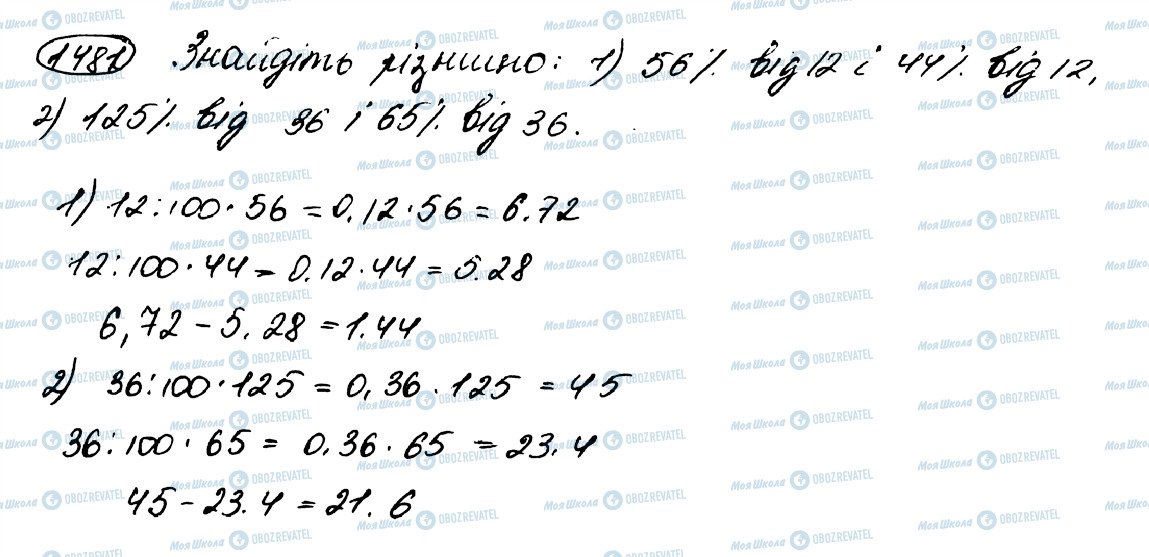 1481 Знайдіть різницю: 1) 56% від 12 і 44% від 12,
2) 125% від 36 і 65% від 36.
1) 12:100·56 = 0,12·56 = 6.72
12:100·44 = 0.12·44 = 5.28
6,72 - 5.28 = 1.44
2) 36:100·125 = 0,36·125 = 45
36:100·65 = 0.36·65 = 23.4
45 - 23.4 = 21.6
МояШкола OBOZREVATEL